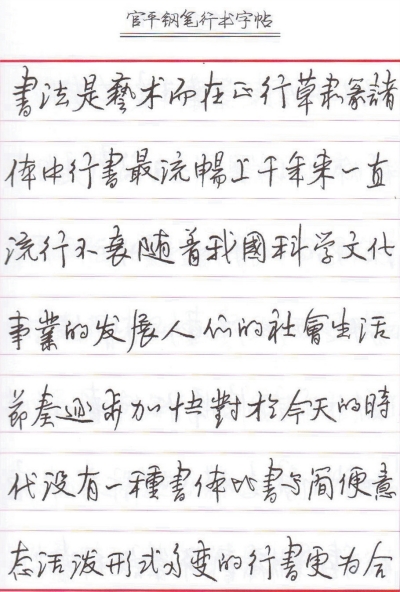 官平钢笔行书字帖
書法是藝术而在正行草隶篆諸
体中行書最流暢上千年来一直
流行不衰随着我國科学文化
事業的发展人们的社會生活
節奏逐步加快對於今天的時
代没有一種書体比書写简便意
态活泼形式多变的行書更为合